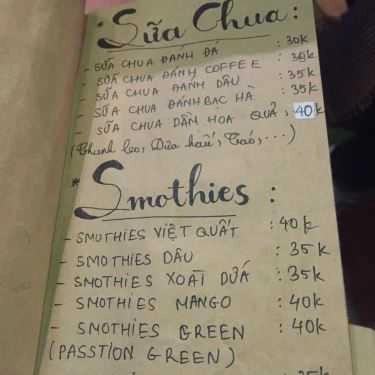 * Sữa Chua :
- SỮA CHUA ĐÁNH ĐÁ : 30k
- SỮA CHUA ĐÁNH COFFEE : 36k
- SỮA CHUA ĐÁNH DÂU : 35k
- SỮA CHUA ĐÁNH BẠC HÀ : 35k
- SỮA CHUA DẦM HOA QUẢ, 40k
(Chanh leo, Dưa hấu, Táo, ...)
* Smothies :
- SMOTHIES VIỆT QUẤT : 40k
- SMOTHIES DÂU : 35k
- SMOTHIES XOÀI DỨA : 35k
- SMOTHIES MANGO : 40k
- SMOTHIES GREEN : 40k
(PASSTION GREEN)